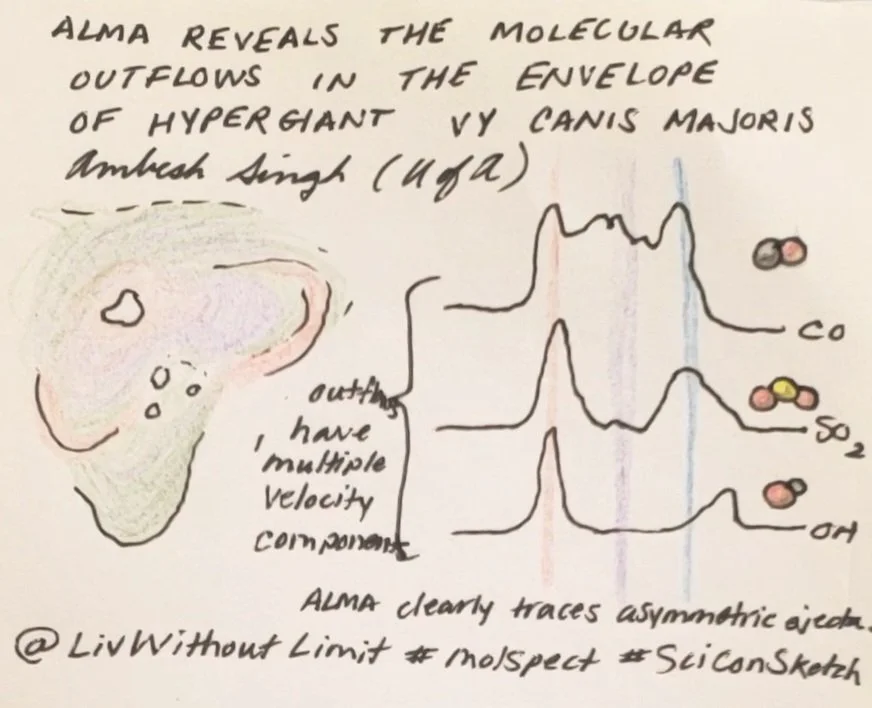 ALMA REVEALS THE MOLECULAR
OUTFLOWS IN THE ENVELOPE
OF HYPERGIANT VY CANIS MAJORIS
Ambesh Singh (U of A)
CO
outflows
have
multiple
velocity
components
SO2
OH
ALMA clearly traces asymmetric ejecta.
@LivWithoutLimit #molspect #SciConSketch